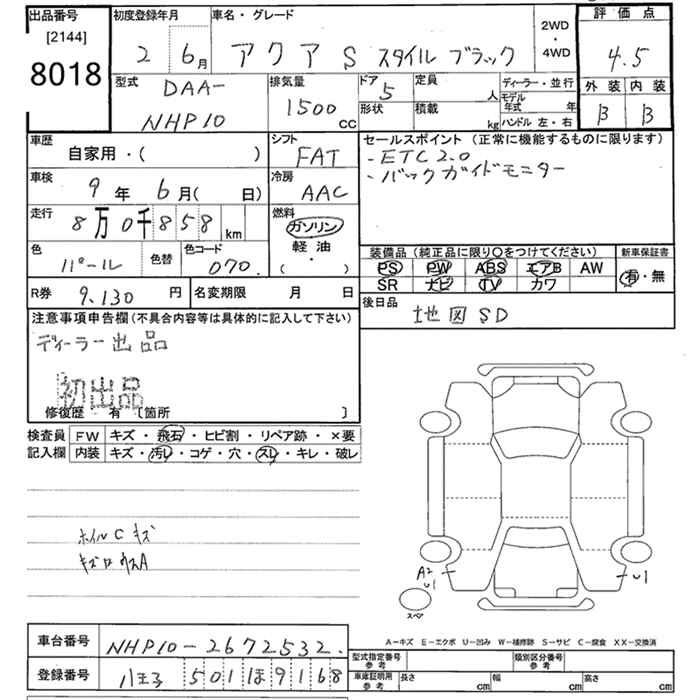 出品番号
[2144]
8018
初度登録年月
2 6月
車名・グレード
アクア S スタイル ブラック
2WD
・
4WD
評価点
4.5
外装 内装
B B
型式
DAA-
NHP10
排気量
1500
CC
ドア
5
形状
定員
人
積載
kg
ディーラー・並行
モデル
年式 年
ハンドル 左・右
車歴
自家用・( )
シフト
FAT
車検
9年 6月( 日)
冷房
AAC
走行
8万0千858 km
燃料
ガソリン
軽油
( ・ )
色
パール
色替
色コード
070.
R券
9,130 円
名変期限 月 日
セールスポイント (正常に機能するものに限ります)
・ETC2.0
・バックガイドモニター
装備品 (純正品に限り○をつけてください)
PS PW ABS エアB AW
SR ナビ TV カワ
新車保証書
有・無
後日品
地図SD
注意事項申告欄(不具合内容等は具体的に記入して下さい)
ディーラー出品
初出品
修復歴 有 [箇所 ]
検査員
記入欄
FW キズ・飛石・ヒビ割・リペア跡・×要
内装 キズ・汚レ・コゲ・穴・スレ・キレ・破レ
ホイルC キズ
A2
U1
U1
スペア
A-キズ E-エクボ U-凹み W-補修跡 S-サビ C-腐食 XX-交換済
車台番号
NHP10-2672532.
登録番号
八王子 501 ほ 9168
型式指定番号
参考
類別区分番号
参考
車庫証明用
参考
長さ cm
幅 cm
高さ cm